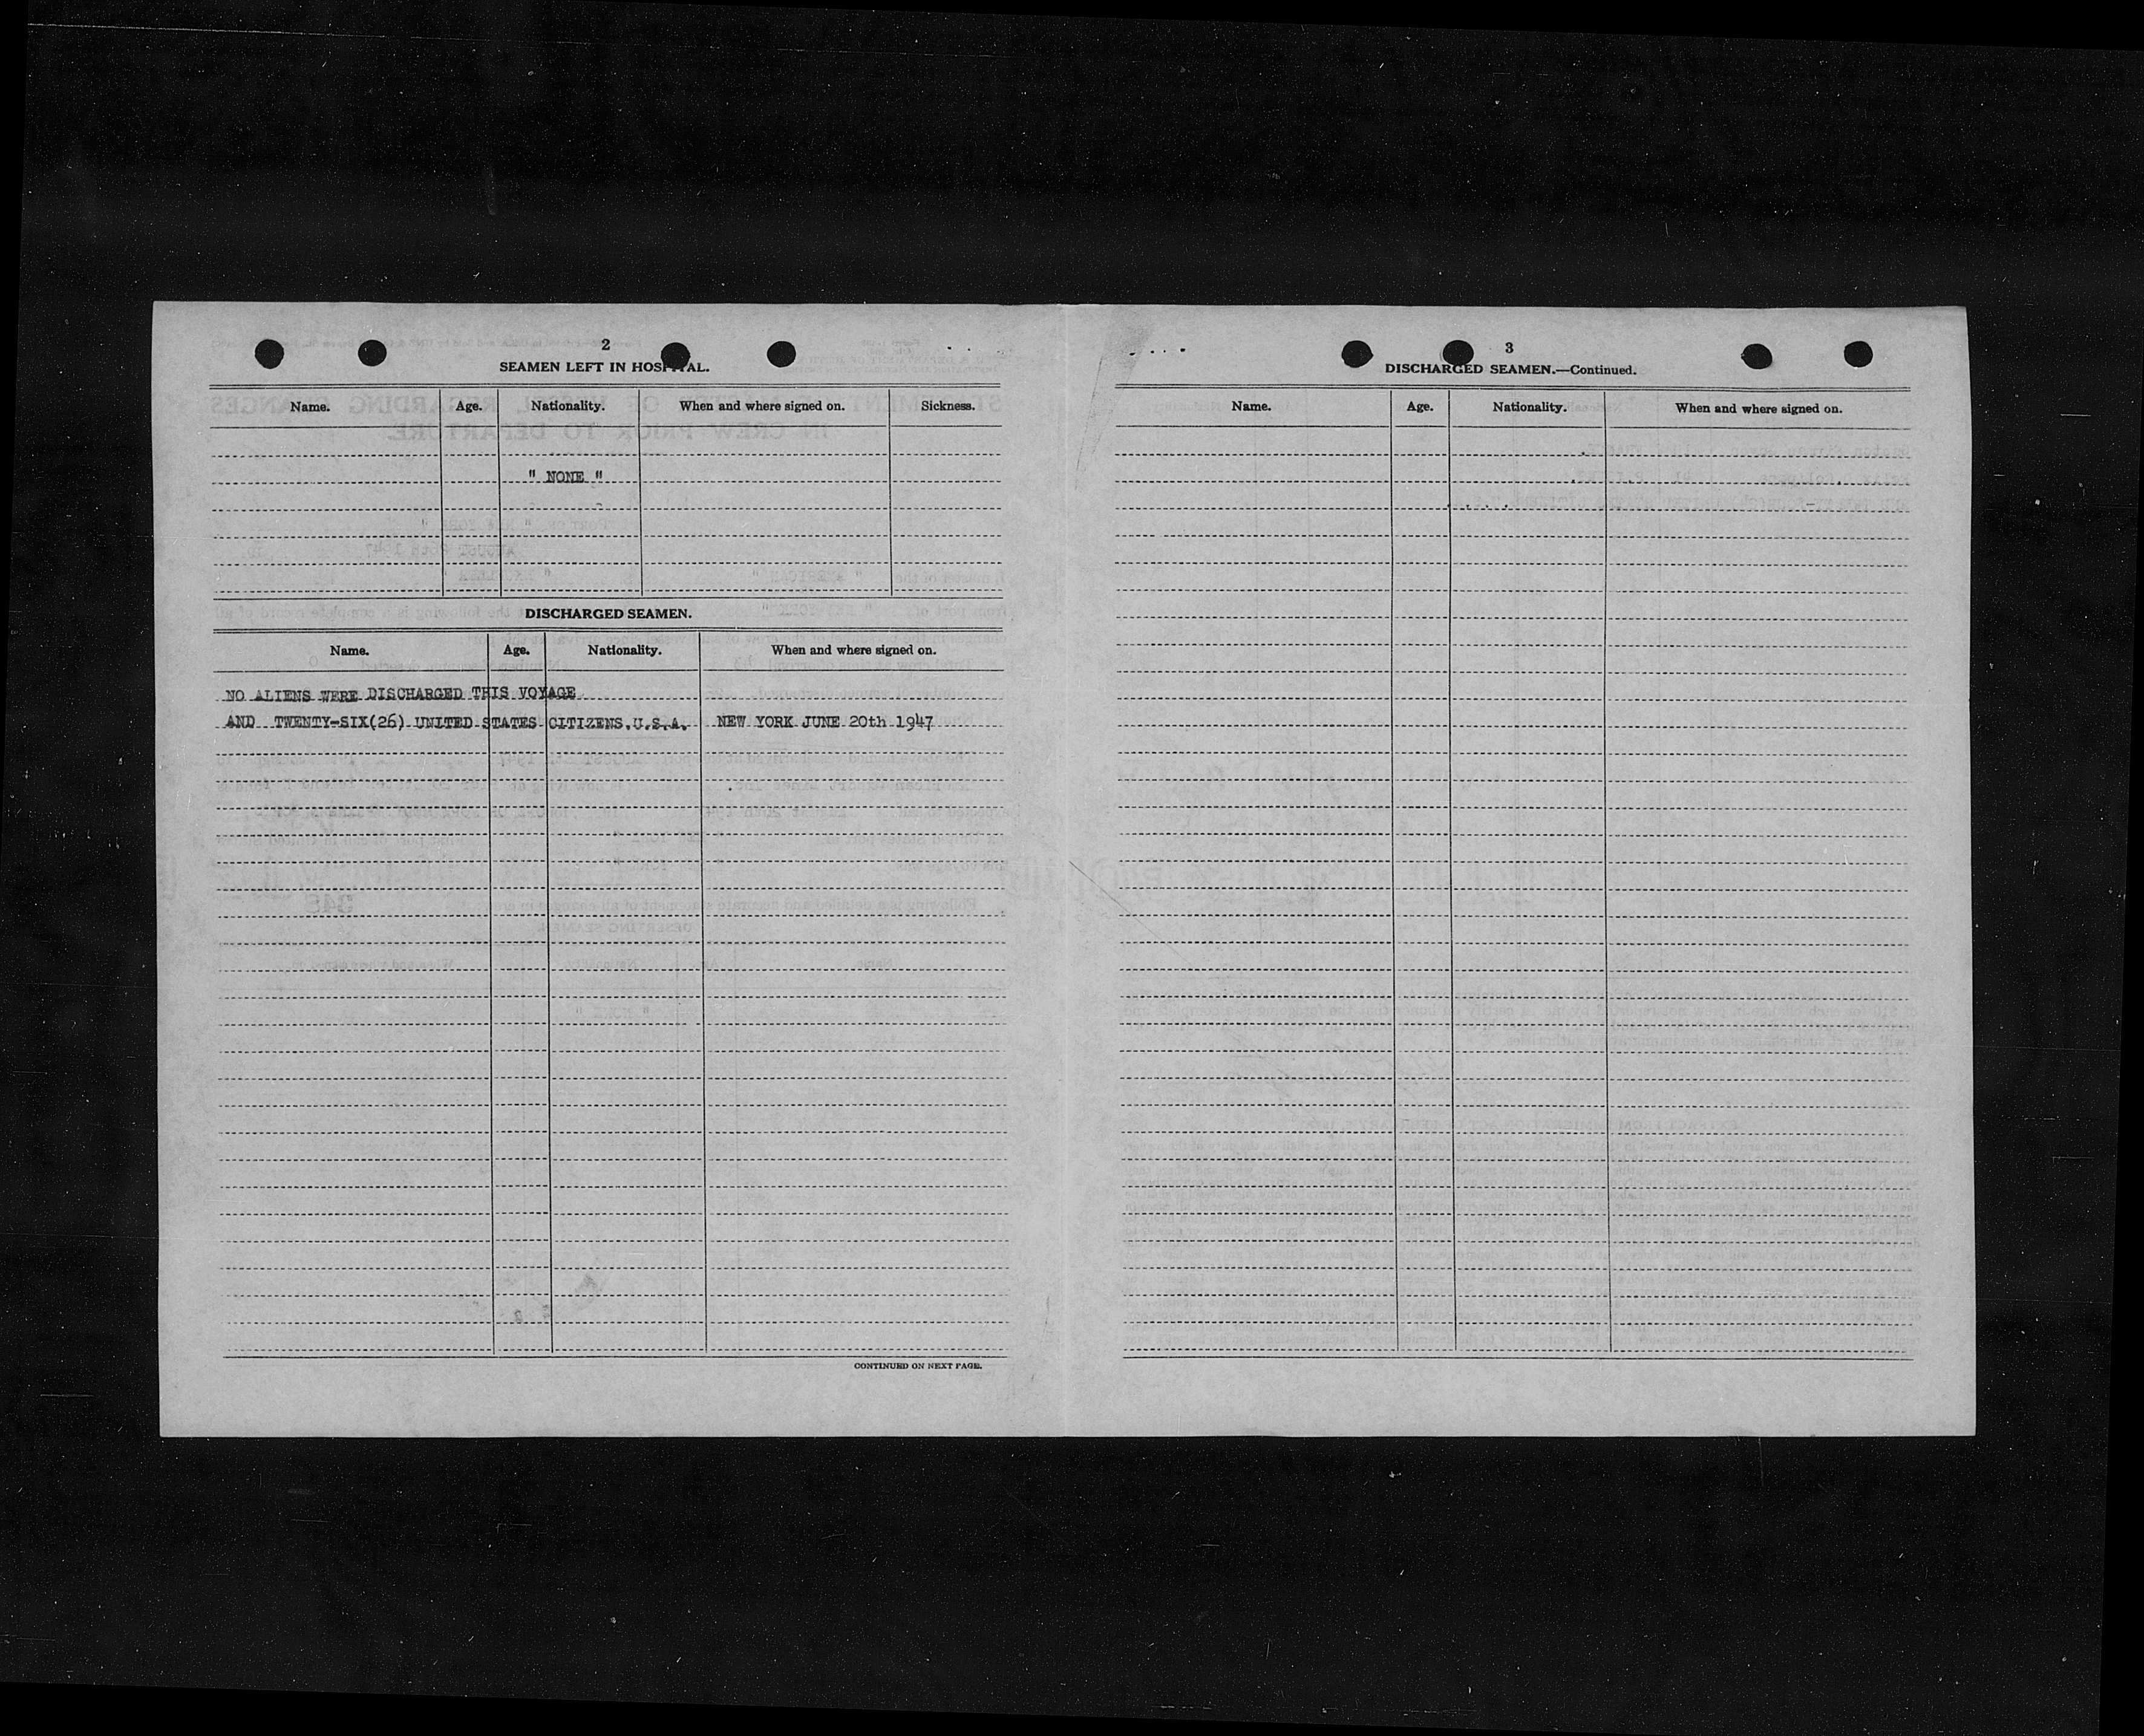 2
SEAMEN LEFT IN HOSPITAL.
Name. Age. Nationality. When and where signed on. Sickness.
" NONE "
DISCHARGED SEAMEN.
Name. Age. Nationality. When and where signed on.
NO ALIENS WERE DISCHARGED THIS VOYAGE
AND TWENTY-SIX(26) UNITED STATES CITIZENS.U.S.A. NEW YORK JUNE 20th 1947
CONTINUED ON NEXT PAGE.
3
DISCHARGED SEAMEN.—Continued.
Name. Age. Nationality. When and where signed on.